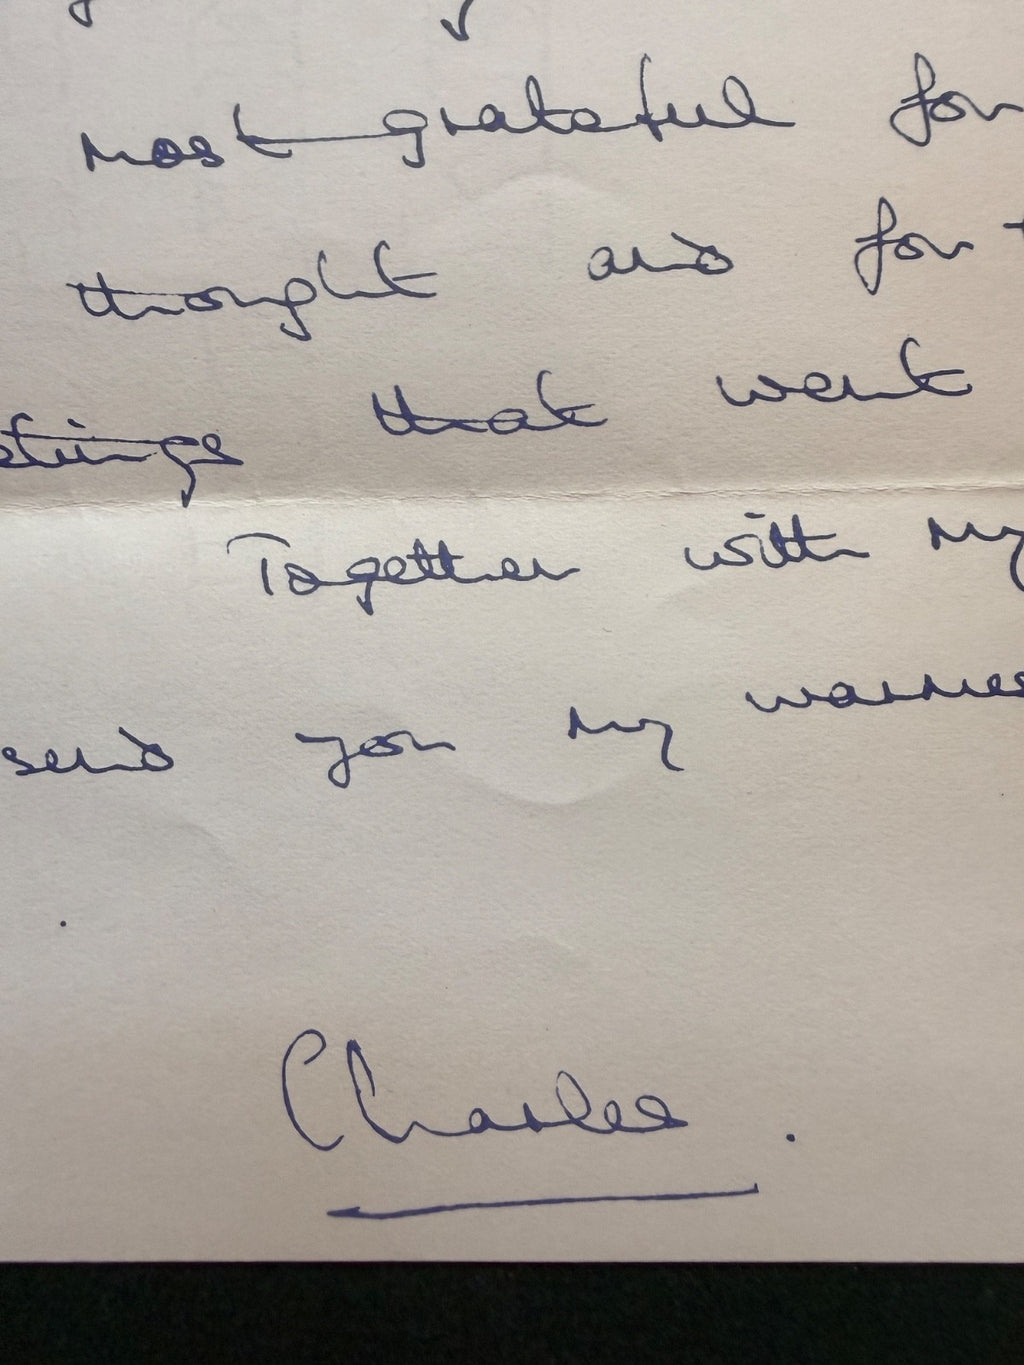 most grateful for
thought and for
that went
Together with my
send you my
Charles.